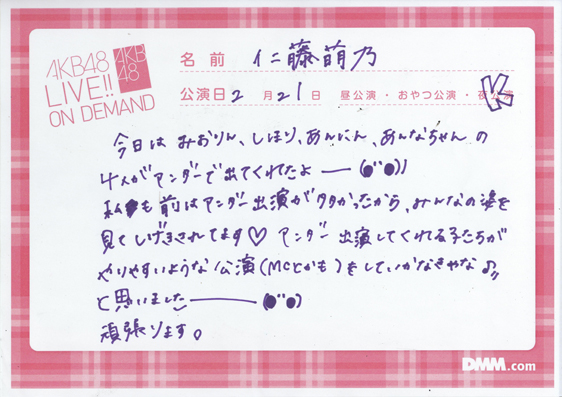 AKB48
LIVE!!
ON DEMAND
AKB
48
名前 仁藤萌乃
公演日 2月21日 昼公演・おやつ公演・夜公演
K
今日は みおりん、しほり、あんにん、あんなちゃん の
4人がアンダーで出てくれたよ
私も前はアンダー出演が多かったから、みんなの姿を
見てしげきされてます♡ アンダー出演してくれる子たちが
やりやすいような公演(MCとかも)をしていかなきゃな♪
と思いました
頑張ります。
DMM.com